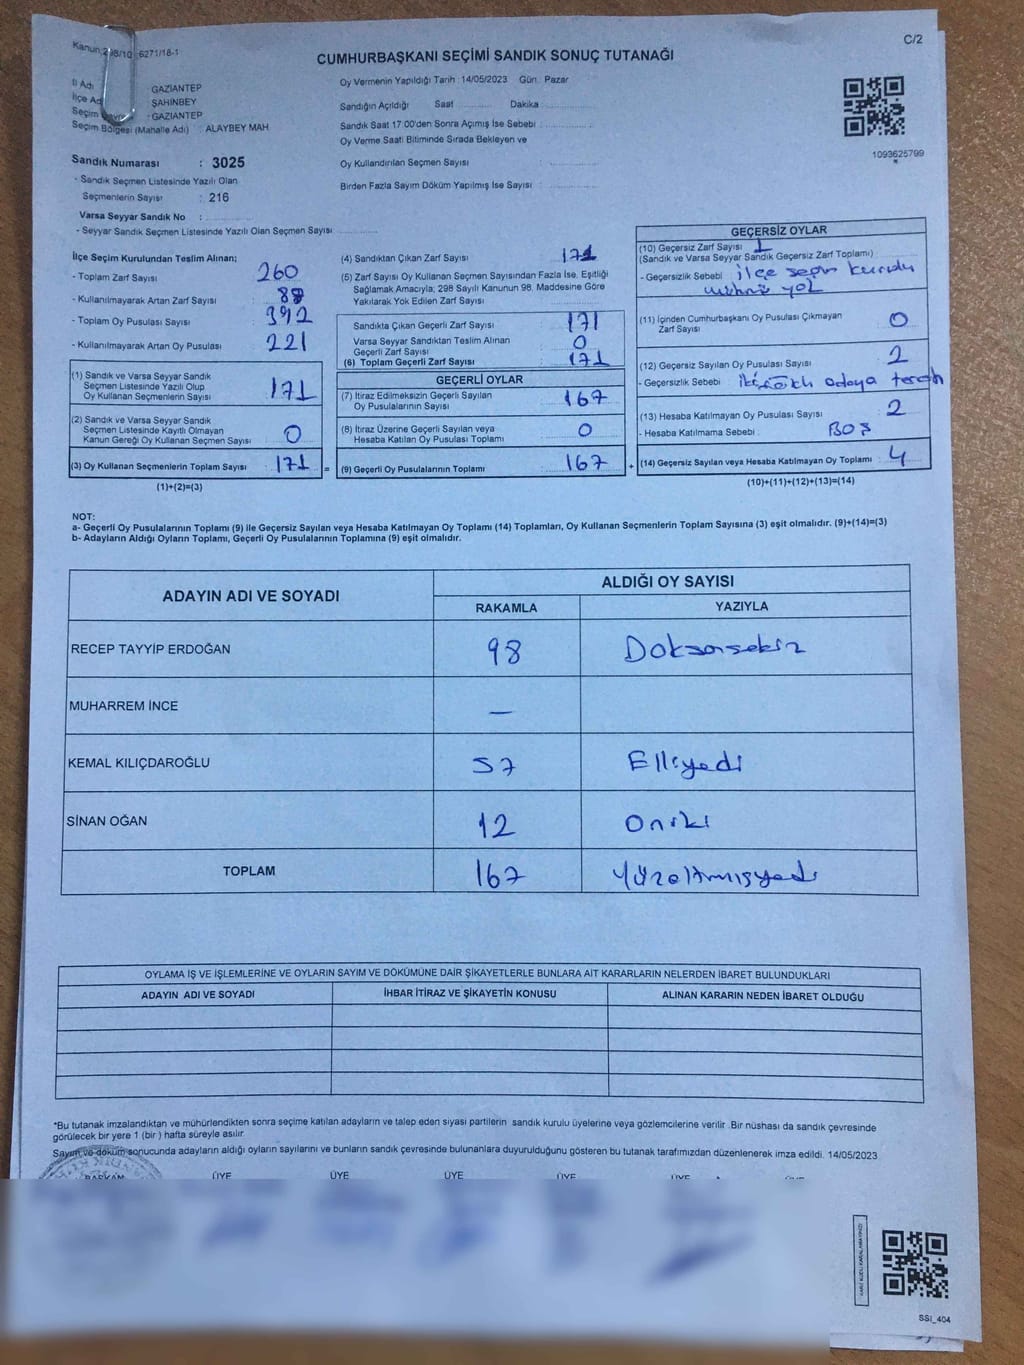 Kanun:298/10 6271/18-1
C/2
CUMHURBAŞKANI SEÇİMİ SANDIK SONUÇ TUTANAĞI
İl Adı GAZİANTEP
İlçe Adı ŞAHİNBEY
Seçim Çevresi : GAZİANTEP
Seçim Bölgesi (Mahalle Adı) : ALAYBEY MAH
Sandık Numarası : 3025
- Sandık Seçmen Listesinde Yazılı Olan
Seçmenlerin Sayısı : 216
Varsa Seyyar Sandık No :
- Seyyar Sandık Seçmen Listesinde Yazılı Olan Seçmen Sayısı
Oy Vermenin Yapıldığı Tarih : 14/05/2023 Gün : Pazar
Sandığın Açıldığı Saat Dakika
Sandık Saat 17:00'den Sonra Açımış İse Sebebi :
Oy Verme Saati Bitiminde Sırada Bekleyen ve
Oy Kullandırılan Seçmen Sayısı :
Birden Fazla Sayım Döküm Yapılmış İse Sayısı :
1093625799
İlçe Seçim Kurulundan Teslim Alınan;
- Toplam Zarf Sayısı : 260
- Kullanılmayarak Artan Zarf Sayısı :
- Toplam Oy Pusulası Sayısı : 392
- Kullanılmayarak Artan Oy Pusulası : 221
(1) Sandık ve Varsa Seyyar Sandık
Seçmen Listesinde Yazılı Olup
Oy Kullanan Seçmenlerin Sayısı : 171
(2) Sandık ve Varsa Seyyar Sandık
Seçmen Listesinde Kayıtlı Olmayan
Kanun Gereği Oy Kullanan Seçmen Sayısı : 0
(3) Oy Kullanan Seçmenlerin Toplam Sayısı : 171 =
(1)+(2)=(3)
(4) Sandıktan Çıkan Zarf Sayısı : 171
(5) Zarf Sayısı Oy Kullanan Seçmen Sayısından Fazla İse, Eşitliği
Sağlamak Amacıyla; 298 Sayılı Kanunun 98. Maddesine Göre
Yakılarak Yok Edilen Zarf Sayısı
Sandıkta Çıkan Geçerli Zarf Sayısı : 171
Varsa Seyyar Sandıktan Teslim Alınan
Geçerli Zarf Sayısı : 0
(6) Toplam Geçerli Zarf Sayısı : 171
GEÇERLİ OYLAR
(7) İtiraz Edilmeksizin Geçerli Sayılan
Oy Pusulalarının Sayısı : 167
(8) İtiraz Üzerine Geçerli Sayılan veya
Hesaba Katılan Oy Pusulası Toplamı : 0
(9) Geçerli Oy Pusulalarının Toplamı : 167 +
GEÇERSİZ OYLAR
(10) Geçersiz Zarf Sayısı : 1
(Sandık ve Varsa Seyyar Sandık Geçersiz Zarf Toplamı)
- Geçersizlik Sebebi : ilçe seçim kurulu
mührü yok
(11) İçinden Cumhurbaşkanı Oy Pusulası Çıkmayan
Zarf Sayısı : 0
(12) Geçersiz Sayılan Oy Pusulası Sayısı : 2
- Geçersizlik Sebebi : adaya tercih
(13) Hesaba Katılmayan Oy Pusulası Sayısı : 2
- Hesaba Katılmama Sebebi : BOŞ
(14) Geçersiz Sayılan veya Hesaba Katılmayan Oy Toplamı : 4
(10)+(11)+(12)+(13)=(14)
NOT:
a- Geçerli Oy Pusulalarının Toplamı (9) ile Geçersiz Sayılan veya Hesaba Katılmayan Oy Toplamı (14) Toplamları, Oy Kullanan Seçmenlerin Toplam Sayısına (3) eşit olmalıdır. (9)+(14)=(3)
b- Adayların Aldığı Oyların Toplamı, Geçerli Oy Pusulalarının Toplamına (9) eşit olmalıdır.
ADAYIN ADI VE SOYADI
ALDIĞI OY SAYISI
RAKAMLA YAZIYLA
RECEP TAYYİP ERDOĞAN 98 Doksansekiz
MUHARREM İNCE —
KEMAL KILIÇDAROĞLU 57 Elliyedi
SİNAN OĞAN 12 Oniki
TOPLAM 167 Yüzaltmışyedi
OYLAMA İŞ VE İŞLEMLERİNE VE OYLARIN SAYIM VE DÖKÜMÜNE DAİR ŞİKAYETLERLE BUNLARA AİT KARARLARIN NELERDEN İBARET BULUNDUKLARI
ADAYIN ADI VE SOYADI İHBAR İTİRAZ VE ŞİKAYETİN KONUSU ALINAN KARARIN NEDEN İBARET OLDUĞU
*Bu tutanak imzalandıktan ve mühürlendikten sonra seçime katılan adayların ve talep eden siyasi partilerin sandık kurulu üyelerine veya gözlemcilerine verilir. Bir nüshası da sandık çevresinde
görülecek bir yere 1 (bir ) hafta süreyle asılır.
Sayım ve döküm sonucunda adayların aldığı oyların sayılarını ve bunların sandık çevresinde bulunanlara duyurulduğunu gösteren bu tutanak tarafımızdan düzenlenerek imza edildi. 14/05/2023
BAŞKAN ÜYE ÜYE ÜYE ÜYE ÜYE ÜYE
SSI_404